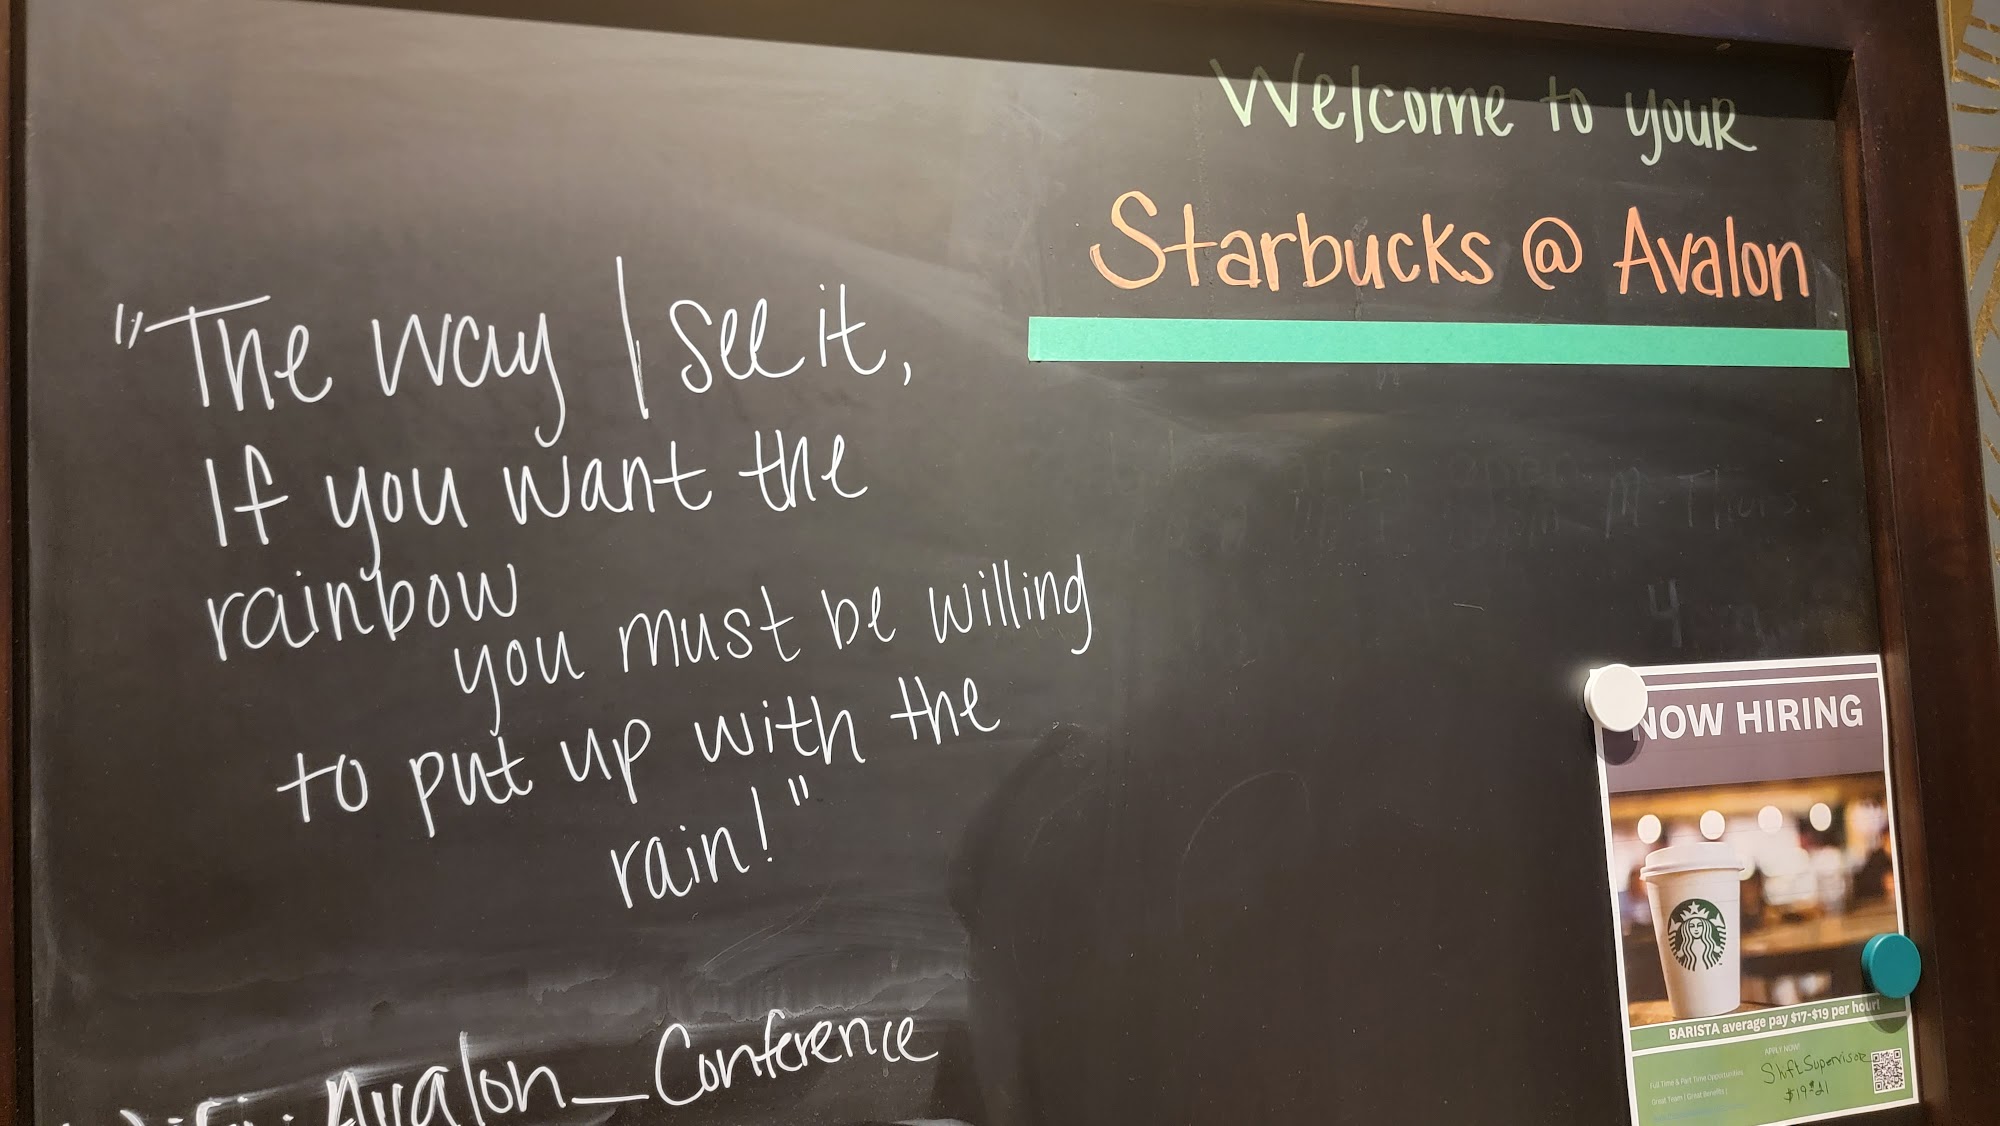 Welcome to your
Starbucks @ Avalon
"The way I see it,
If you want the
rainbow
you must be willing
to put up with the
rain!"
Wifi: Avalon_Conference
NOW HIRING
BARISTA average pay $17-$19 per hour!
APPLY NOW!
Full Time & Part Time Opportunities
Great Team! Great Benefits!
Shift Supervisor
$19-21